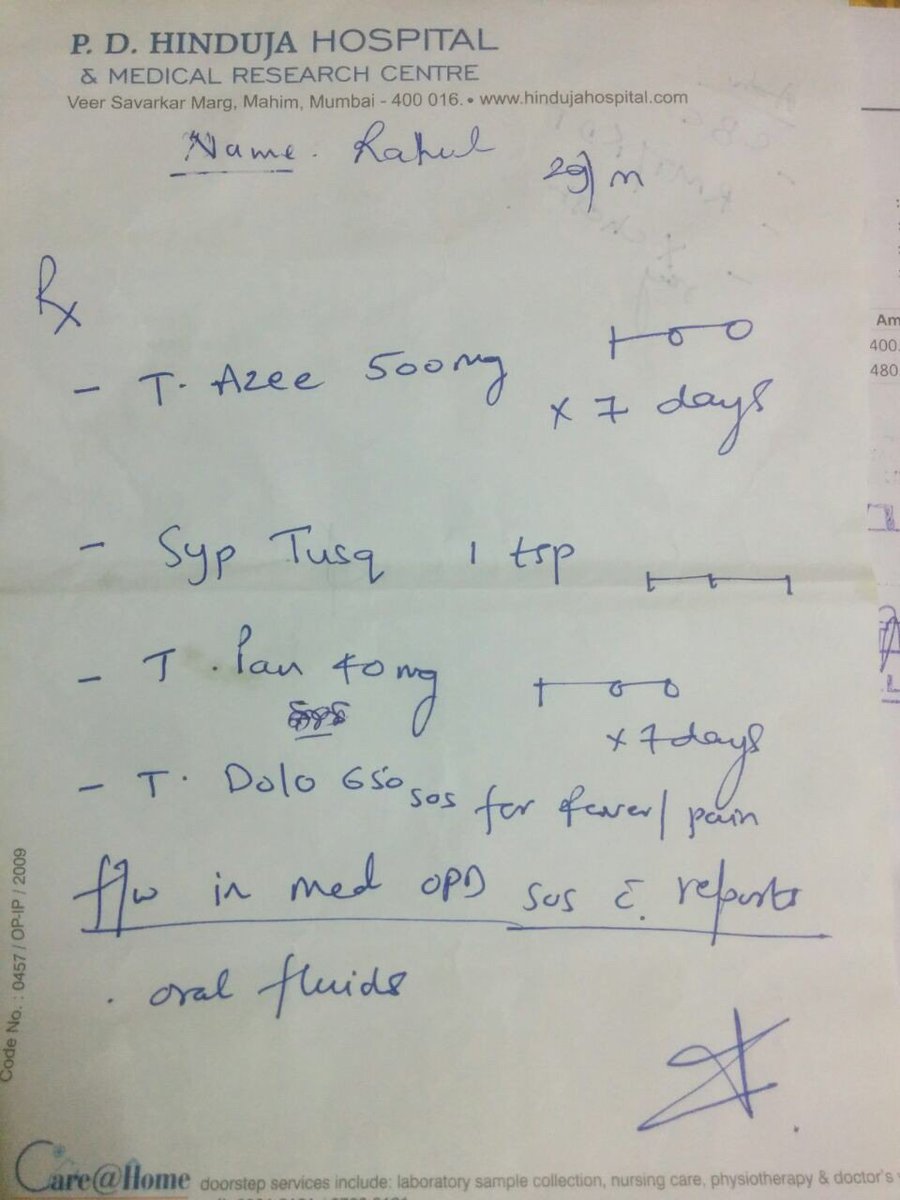 P. D. HINDUJA HOSPITAL
& MEDICAL RESEARCH CENTRE
Veer Savarkar Marg, Mahim, Mumbai - 400 016. • www.hindujahospital.com
Name. Rahul 29/m
Rx
- T. Azee 500mg
x 7 days
- Syp Tusq 1 tsp
- T. Pan 40 mg
x 7 days
- T. Dolo 650 sos for fever/pain
f/w in med OPD sos c̄. reports
. oral fluids
Code No. : 0457 / OP-IP / 2009
Care@Home doorstep services include: laboratory sample collection, nursing care, physiotherapy & doctor's
Am
400.
480